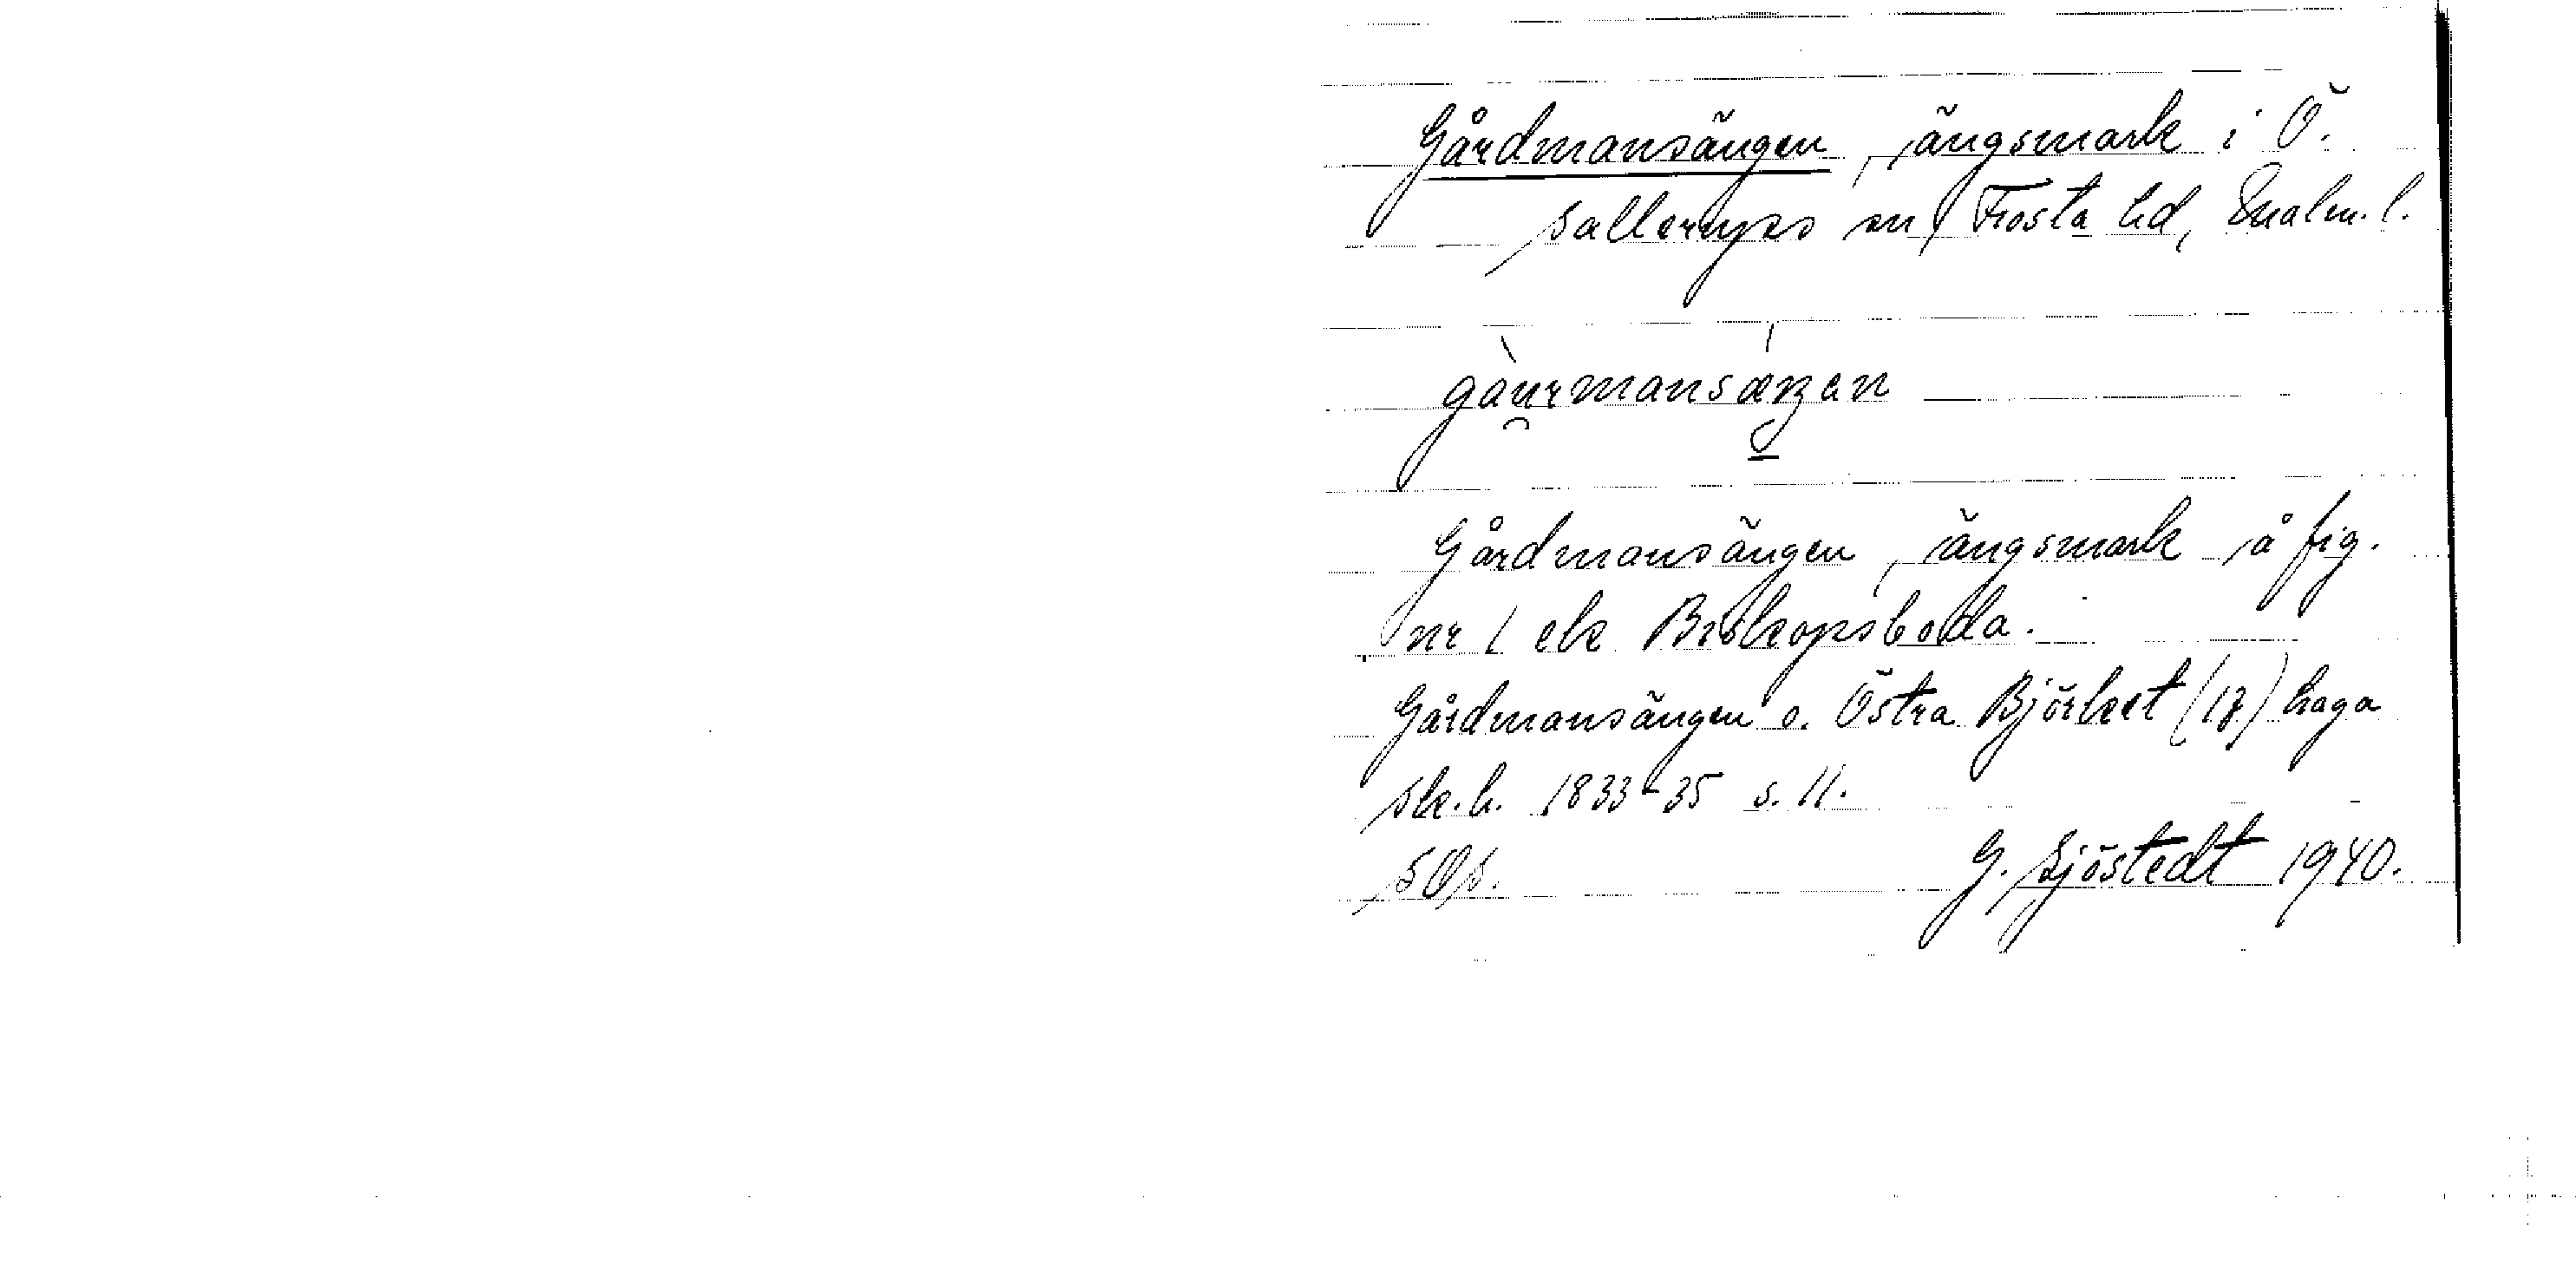 Gårdmansängen, ängsmark i Ö.
Sallerups sn, Frosta hd, Malm. l.
gàu̯rmansǽŋen
Gårdmansängen, ängsmark å fig.
nr 1 ek Biskopsboda.
Gårdmansängen o. Östra Björket (13) haga
sk.h. 1833-35 s. 11.
SOS. G. Sjöstedt 1940.